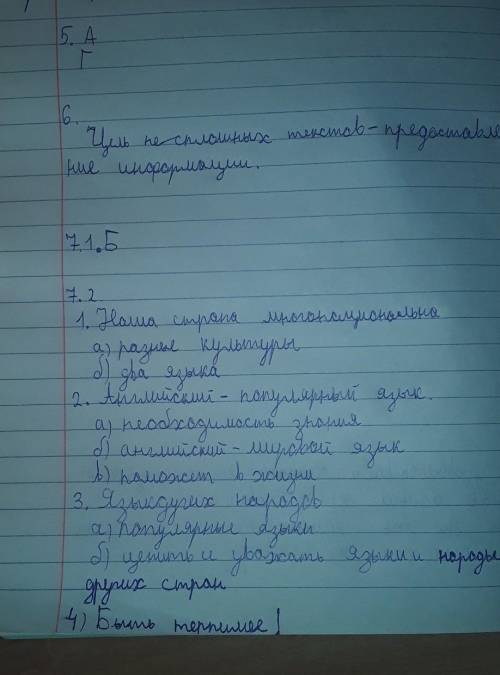 5. А
Г
6.
Цель несплошных текстов - предоставле
ние информации.
7.1. Б
7.2
1. Наша страна многонациональна
а) разные культуры
б) два языка
2. Английский - популярный язык.
а) необходимость знания
б) английский - мировой язык
в) поможет в жизни
3. Языкдугих народов
а) популярные языки
б) ценить и уважать языки и народы
других стран
4) Быть терпимее!